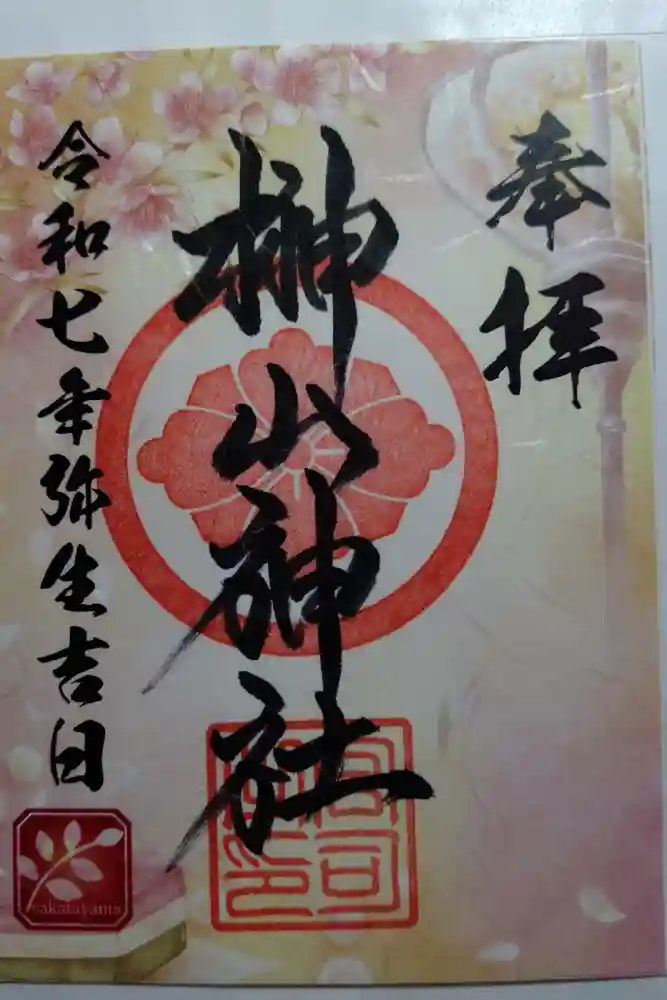 奉拝
榊山神社
令和七年弥生吉日
宮司之印
sakakiyama